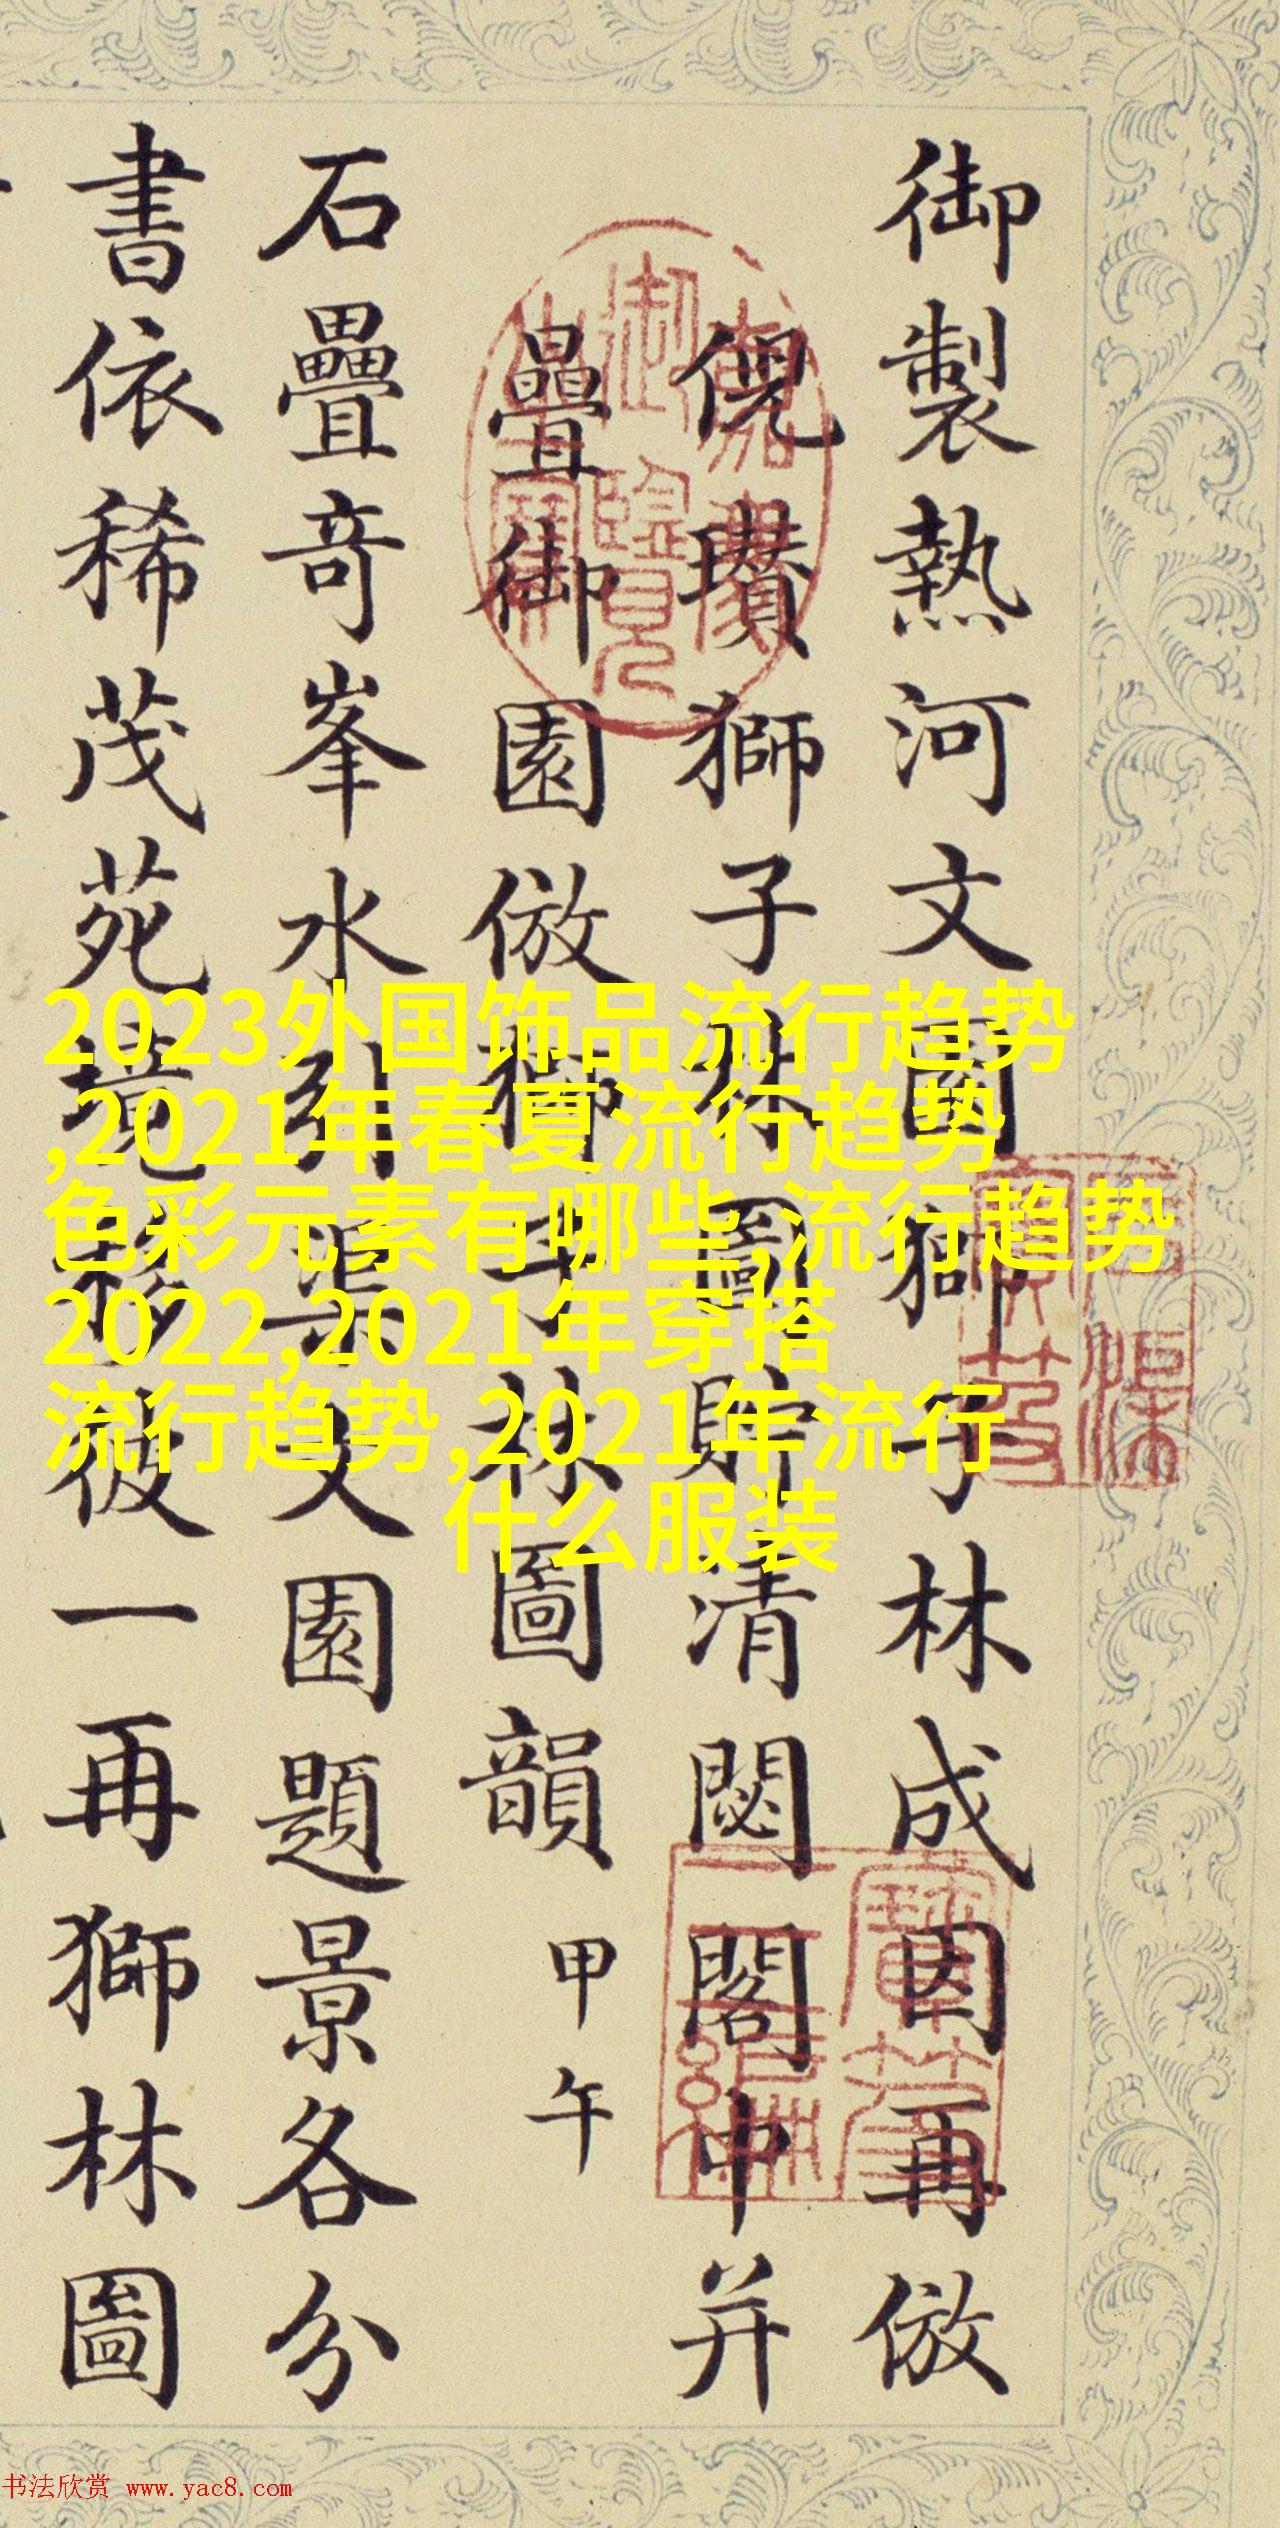 御製熱河文園獅子林成因再倣
倪瓚獅子林圖貯清閟閣中并
疊御園倣獅子林圖韻 甲午
石疊奇峯水引渠文園題景各分
書依稀茂苑境移彼一再獅林圖
嘉慶
御覽
之寶
寶笈
三編
2023外国饰品流行趋势
,2021年春夏流行趋势
色彩元素有哪些,流行趋势
2022,2021年穿搭
流行趋势,2021年流行
什么服装
书法欣赏 www.yac8.com